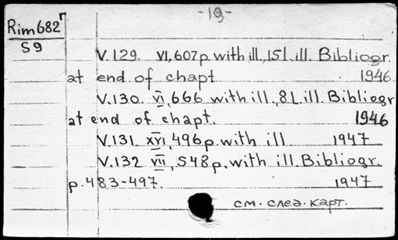 -19-
Rim682ⁿ
S9
V.129. VI,607p. with ill.,15l.ill. Bibliogr.
at end of chapt 1946.
V.130. VI,666 with ill.,8l.ill. Bibliogr
at end of chapt. 1946
V.131. XVI,496p.with ill 1947
V.132 VII,548p.with ill. Bibliogr.
p.483-497. 1947
см. след. карт.